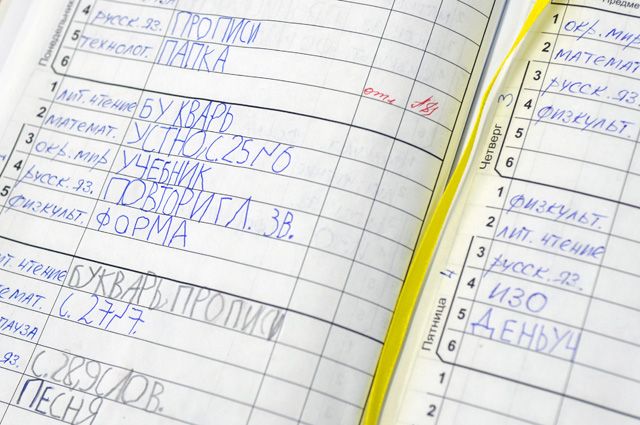 Понедельник
4 русск. яз. ПРОПИСИ
5 технолог. ПАПКА
6
отл
1 лит. чтение БУКВАРЬ
2 математ. УСТНО С.25 №6
3 окр. мир УЧЕБНИК
4 русск. яз. ПОВТОРИ ГЛ. ЗВ.
5 физкульт. ФОРМА
чтение БУКВАРЬ, ПРОПИСИ
С. 27 №7.
яз. С. 28, 9 СЛОВ.
ПЕСНЯ
1 окр. мир
2 математ
3 русск. яз.
4 физкульт.
5
6
Четверг 3
1 физкульт.
2 лит. чтение
3 русск. яз.
4 ИЗО
5 ДЕНЬУЧ
6
Пятница 4
1
2